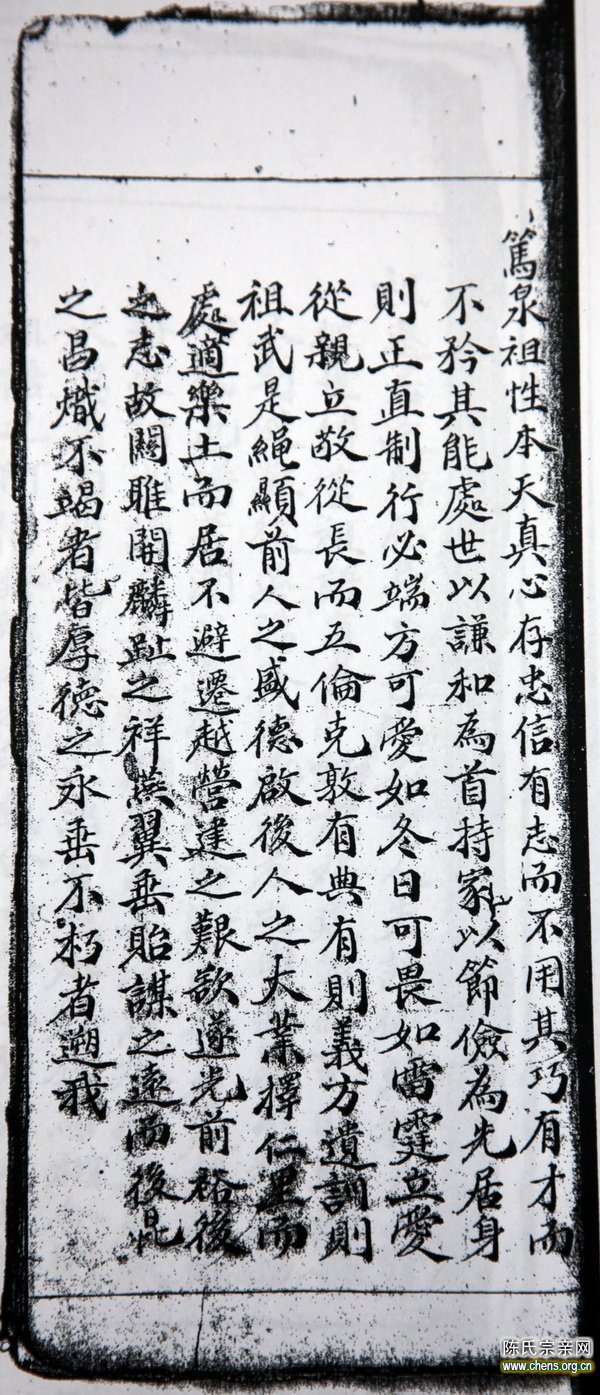 篤泉祖性本天真心存忠信有志而不用其巧有才而
不矜其能處世以謙和為首持家以節儉為先居身
則正直制行必端方可愛如冬日可畏如雷霆立愛
從親立敬從長而五倫克敦有典有則義方遺訓則
祖武是繩顯前人之盛德啟後人之大業擇仁里而
處適樂土而居不避遷越營建之艱欲遂光前裕後
之志故關雎開麟趾之祥燕翼垂貽謀之遠而後昆
之昌熾不竭者皆厚德之永垂不朽者遡我
陈氏宗亲网
www.chens.org.cn